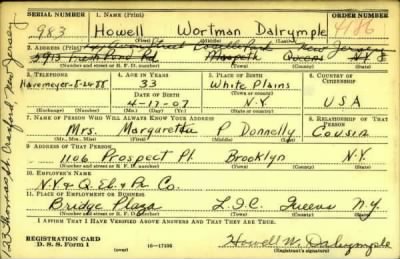 SERIAL NUMBER 1. NAME (Print) ORDER NUMBER
983 Howell Wortman Dalrymple 4186
(First) (Middle) (Last)
2. ADDRESS (Print) New Jersey
5913 Fresh Pond Rd Maspeth Queens N.Y.
(Number and street or R. F. D. number) (Town) (County) (State)
3. TELEPHONE 4. AGE IN YEARS 5. PLACE OF BIRTH 6. COUNTRY OF CITIZENSHIP
Havemeyer-8-2488 33 White Plains
DATE OF BIRTH (Town or county)
4-17-07 N.Y. USA
(Exchange) (Number) (Mo.) (Day) (Yr.) (State or country)
7. NAME OF PERSON WHO WILL ALWAYS KNOW YOUR ADDRESS 8. RELATIONSHIP OF THAT PERSON
Mrs. Margaretta P Donnelly Cousin
(Mr., Mrs., Miss) (First) (Middle) (Last)
9. ADDRESS OF THAT PERSON
1106 Prospect Pl. Brooklyn N.Y.
(Number and street or R. F. D. number) (Town) (County) (State)
10. EMPLOYER'S NAME
N.Y & Q. El. & Pr Co.
11. PLACE OF EMPLOYMENT OR BUSINESS
Bridge Plaza L.I.C. Queens N.Y.
(Number and street or R. F. D. number) (Town) (County) (State)
I AFFIRM THAT I HAVE VERIFIED ABOVE ANSWERS AND THAT THEY ARE TRUE.
REGISTRATION CARD
D. S. S. Form 1 (over) 16-17105 Howell W. Dalrymple
(Registrant's signature)
Cranford, New Jersey